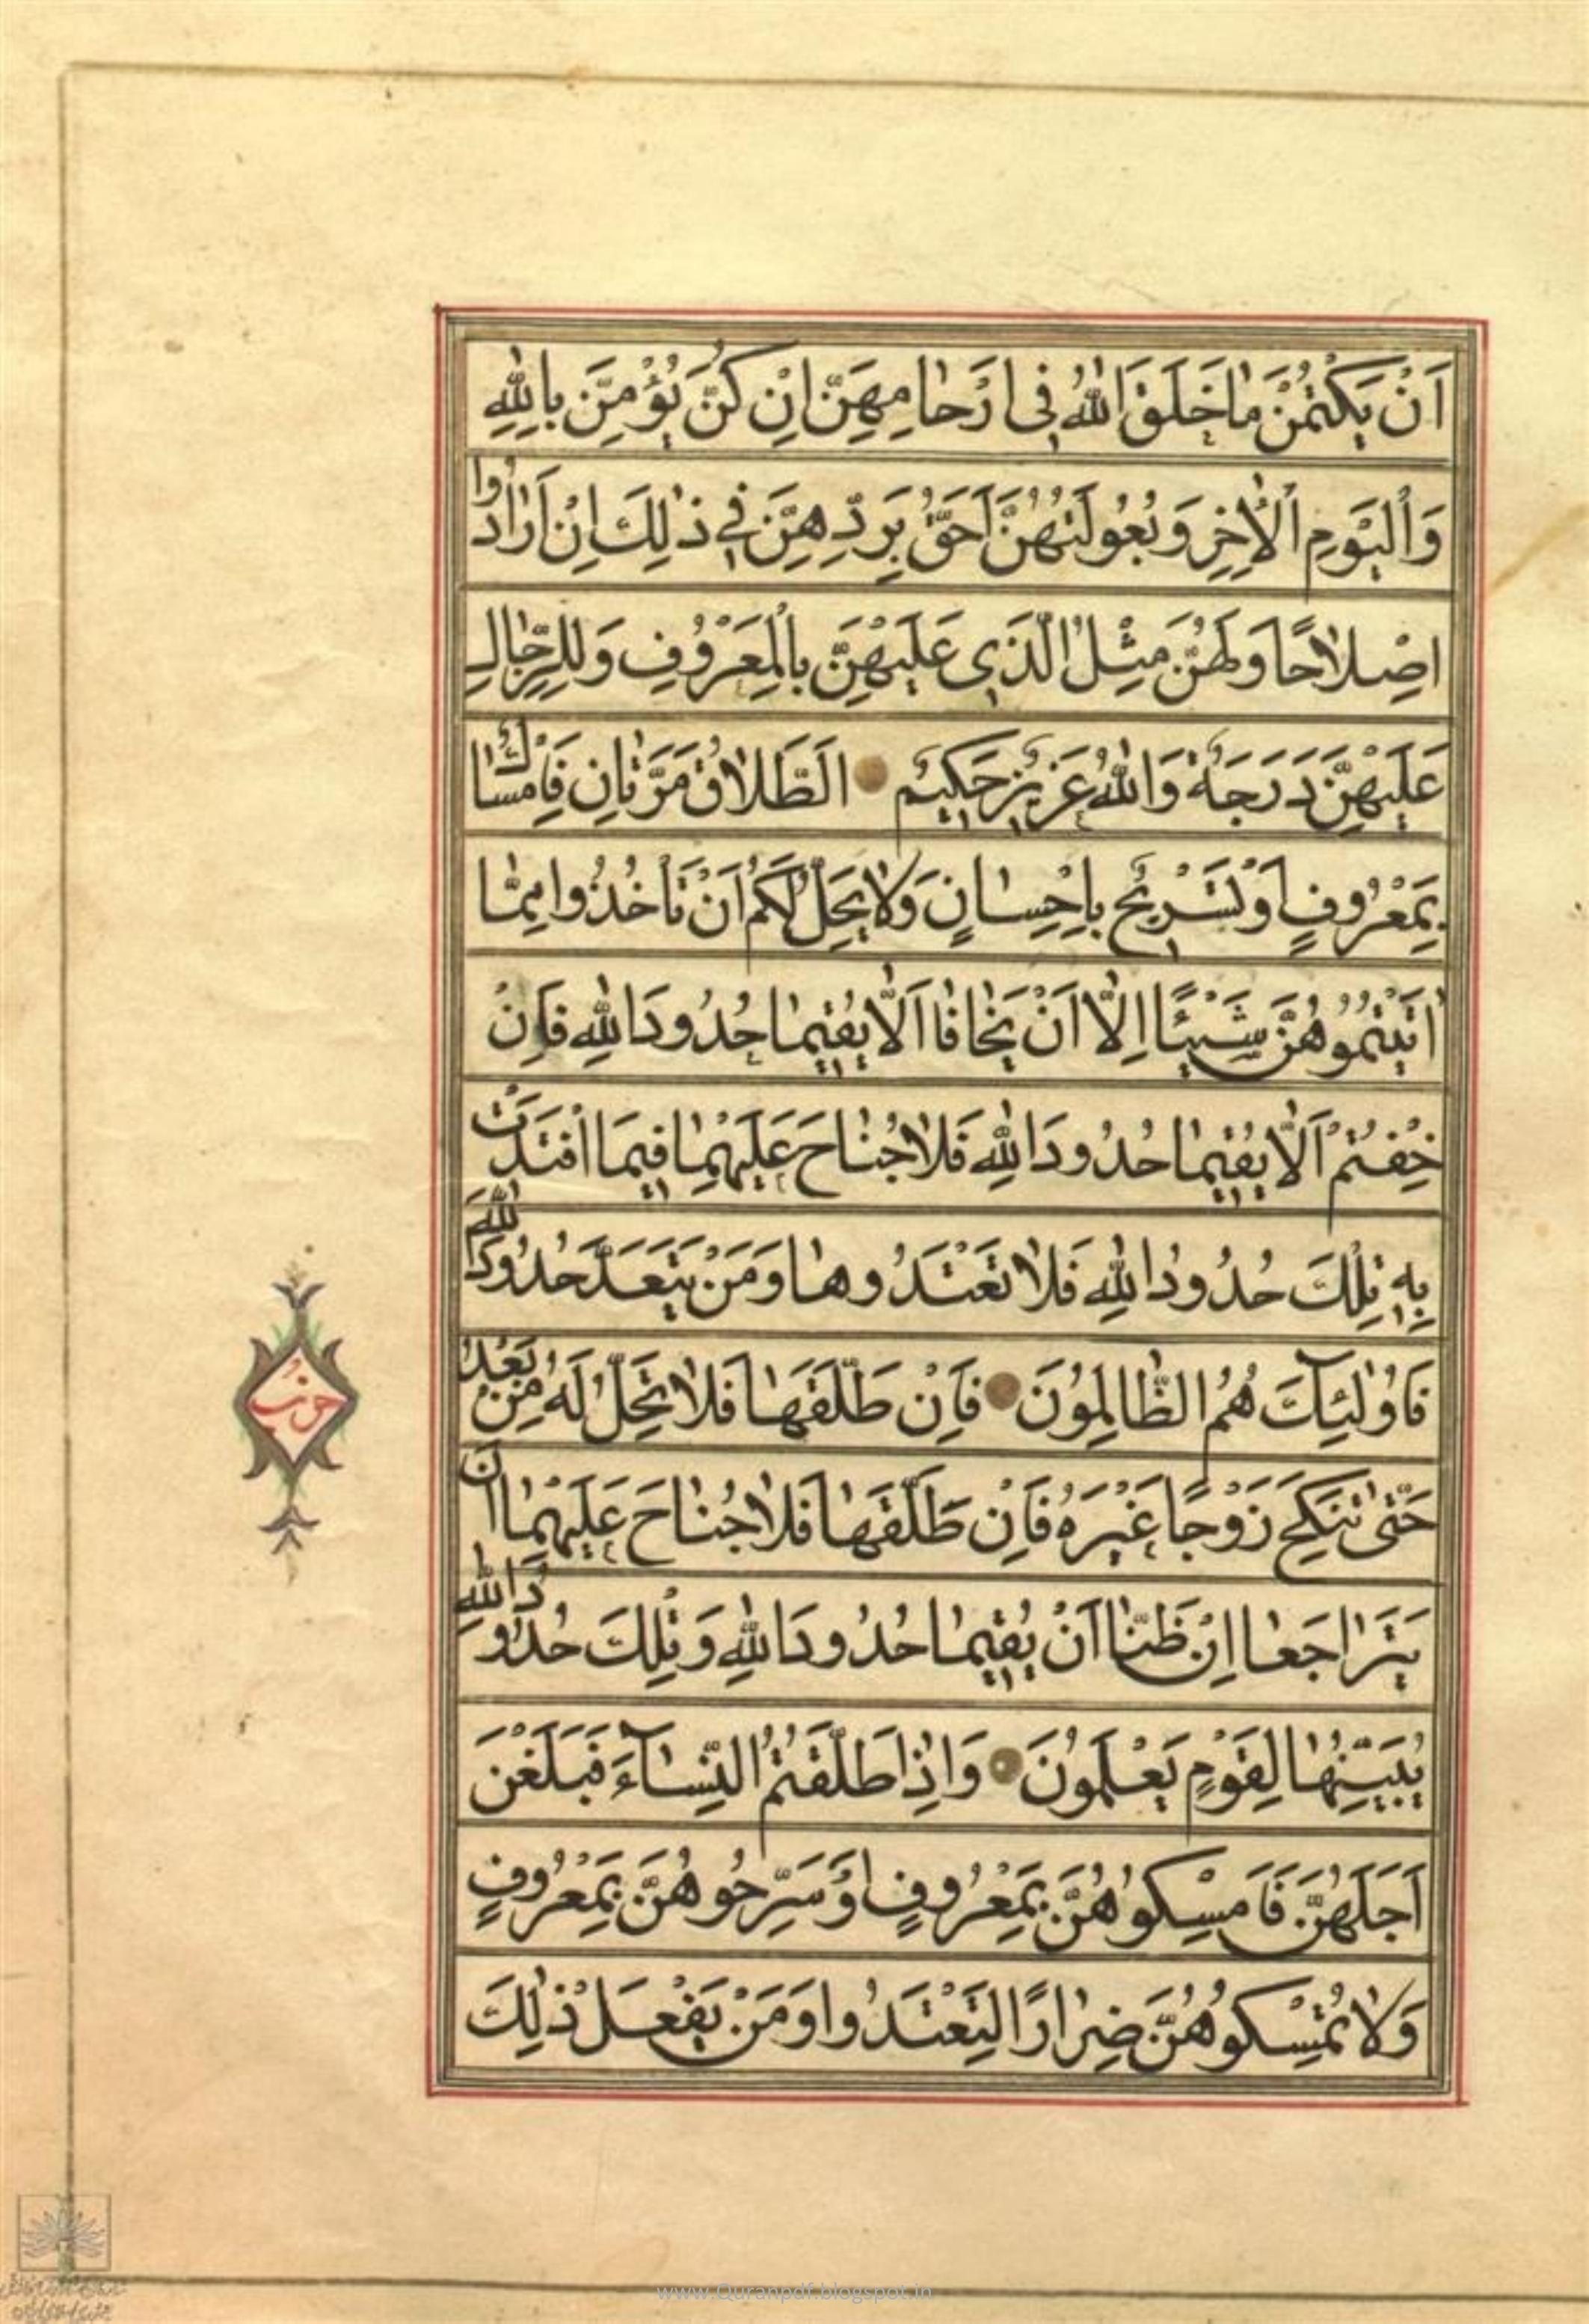 اَنْ يَكْتُمْنَ مٰا خَلَقَ اللّٰهُ فِي اَرْحٰامِهِنَّ اِنْ كُنَّ يُؤْمِنَّ بِاللّٰهِ
وَالْيَوْمِ الْاٰخِرِ وَبُعُولَتُهُنَّ اَحَقُّ بِرَدِّهِنَّ فِي ذٰلِكَ اِنْ اَرٰادُوا
اِصْلاٰحًا وَلَهُنَّ مِثْلُ الَّذِي عَلَيْهِنَّ بِالْمَعْرُوفِ وَلِلرِّجٰالِ
عَلَيْهِنَّ دَرَجَةٌ وَاللّٰهُ عَزِيزٌ حَكِيمٌ اَلطَّلاٰقُ مَرَّتٰانِ فَاِمْسٰاكٌ
بِمَعْرُوفٍ اَوْ تَسْرِيحٌ بِاِحْسٰانٍ وَلاٰ يَحِلُّ لَكُمْ اَنْ تَأْخُذُوا مِمّٰا
اٰتَيْتُمُوهُنَّ شَيْئًا اِلّٰا اَنْ يَخٰافٰا اَلّٰا يُقِيمٰا حُدُودَ اللّٰهِ فَاِنْ
خِفْتُمْ اَلّٰا يُقِيمٰا حُدُودَ اللّٰهِ فَلاٰ جُنٰاحَ عَلَيْهِمٰا فِيمَا افْتَدَتْ
بِهِ تِلْكَ حُدُودُ اللّٰهِ فَلاٰ تَعْتَدُوهٰا وَمَنْ يَتَعَدَّ حُدُودَ اللّٰهِ
فَاُولٰئِكَ هُمُ الظّٰالِمُونَ فَاِنْ طَلَّقَهٰا فَلاٰ تَحِلُّ لَهُ مِنْ بَعْدُ
حَتّٰى تَنْكِحَ زَوْجًا غَيْرَهُ فَاِنْ طَلَّقَهٰا فَلاٰ جُنٰاحَ عَلَيْهِمٰا اَنْ
يَتَرٰاجَعٰا اِنْ ظَنّٰا اَنْ يُقِيمٰا حُدُودَ اللّٰهِ وَتِلْكَ حُدُودُ اللّٰهِ
يُبَيِّنُهٰا لِقَوْمٍ يَعْلَمُونَ وَاِذٰا طَلَّقْتُمُ النِّسٰاءَ فَبَلَغْنَ
اَجَلَهُنَّ فَاَمْسِكُوهُنَّ بِمَعْرُوفٍ اَوْ سَرِّحُوهُنَّ بِمَعْرُوفٍ
وَلاٰ تُمْسِكُوهُنَّ ضِرٰارًا لِتَعْتَدُوا وَمَنْ يَفْعَلْ ذٰلِكَ
حزب
www.Quranpdf.blogspot.in